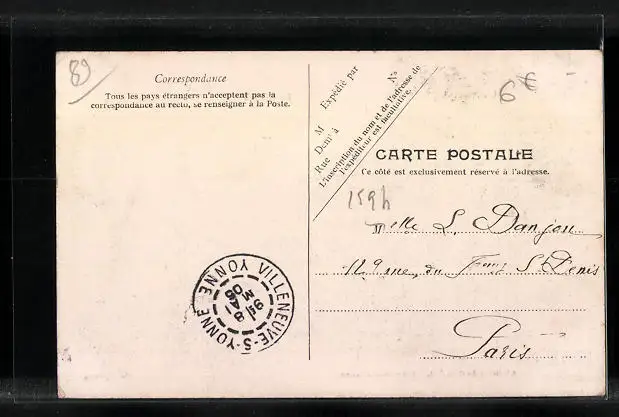 89
Correspondance
Tous les pays étrangers n'acceptent pas la
correspondance au recto, se renseigner à la Poste.
M Expédié par
Demt à
Rue No
L'inscription du nom et de l'adresse de
l'expéditeur est facultative.
6€
CARTE POSTALE
Ce côté est exclusivement réservé à l'adresse.
159h
Melle L. Danjou
129 rue du Faug St Denis
Paris
VILLENEUVE-S-YONNE YONNE